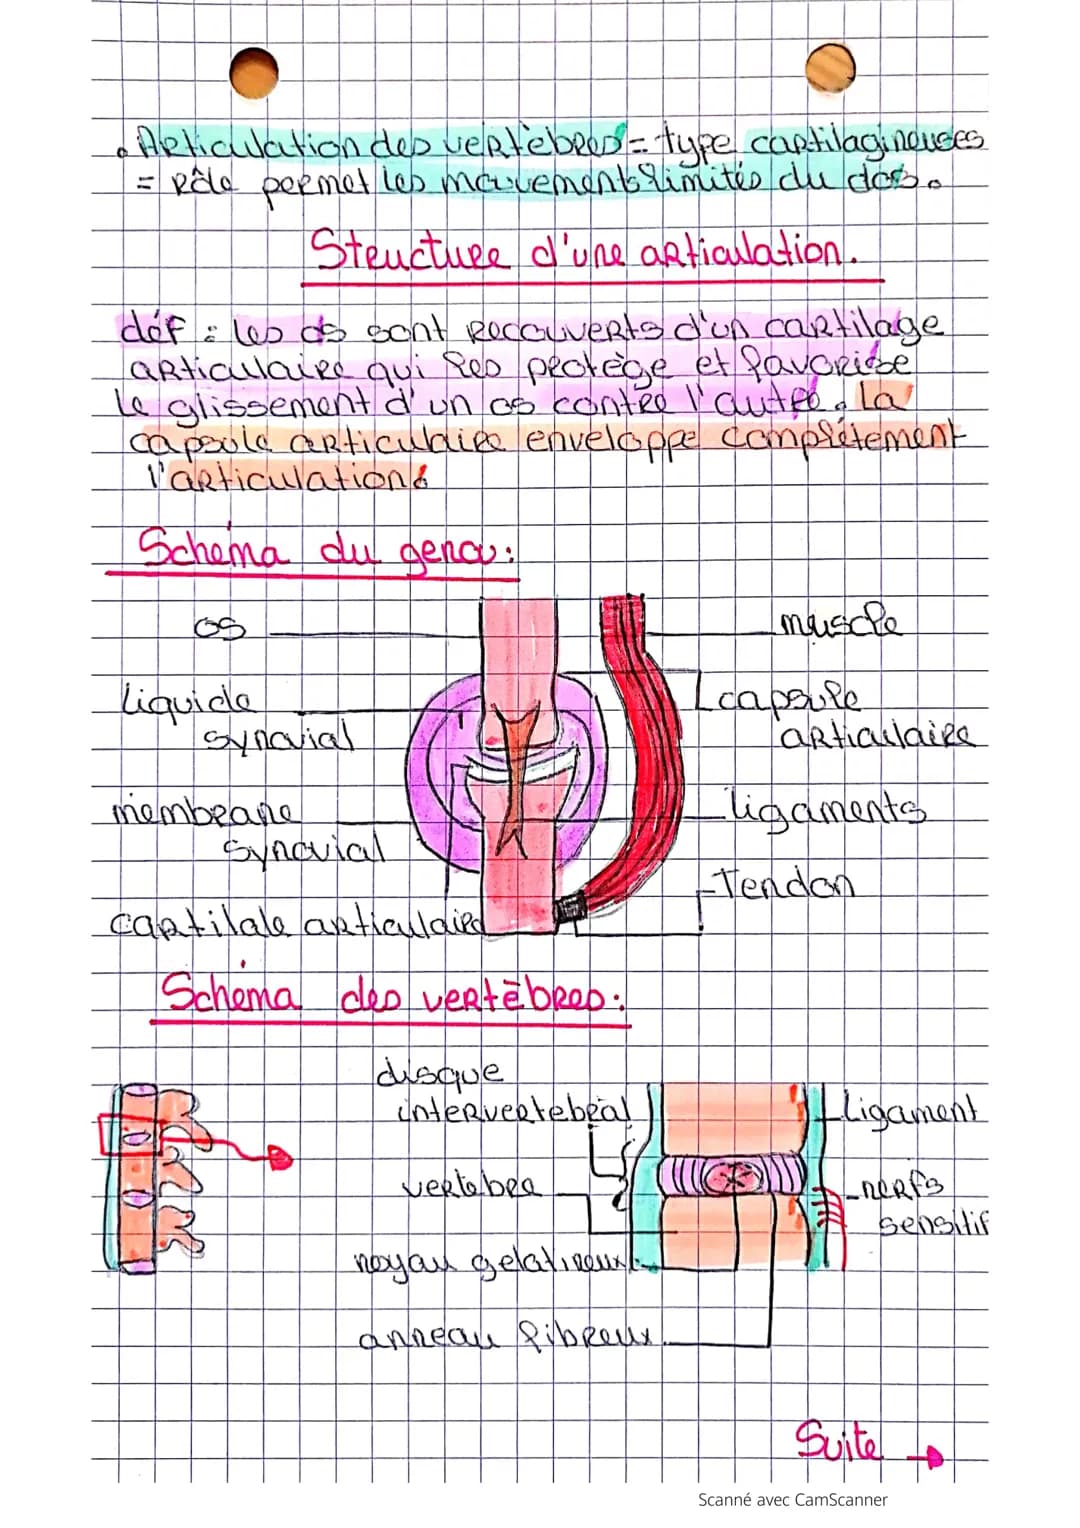 . Articulation des vertèbres = type cartilagineuses
= Rôle permet les mouvements limités du dos.
Structure d'une articulation.
déf : les os sont recouverts d'un cartilage
articulaire qui les protège et favorise
le glissement d'un os contre l'autre. La
capsule articulaire enveloppe complètement
l'articulation.
Schéma du genou:
os
muscle
liquide
synovial
capsule
articulaire
membrane
synovial
ligaments
Tendon
cartilale articulaire
Schéma des vertèbres:
disque
intervertebral
Ligament
vertebre
nerfs
sensitif
noyau gelatineux
anneau fibreux
Suite →
Scanné avec CamScanner